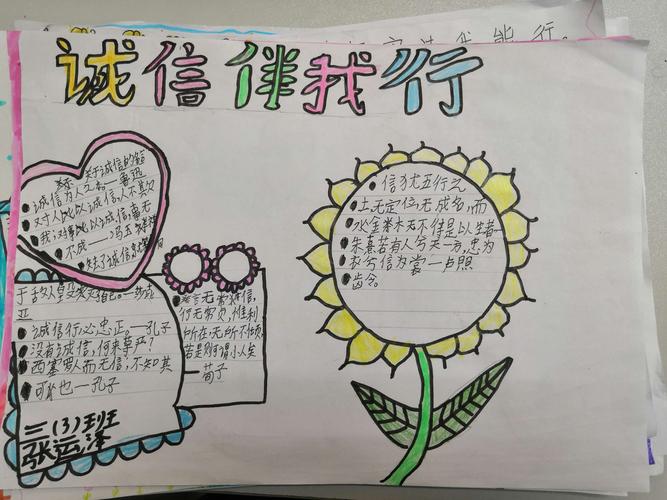 诚信伴我行
关于诚信的名
诚信为人之本——鲁迅
对人以诚信,人不欺
我;对事以诚信,事无
不成——冯玉祥
失去了诚信
亚
诚信行必忠正。——孔子
没有诚信,何来尊严?
西塞罗人而无信,不知其
可也——孔子
三(3)班
张运泽
言无常信,
行无常贞,惟利
所在无所不倾,
若是则可谓小人矣
荀子
信犹五行之
土无定位无成名,而
水金木无不待是以生者——
朱熹若有人兮天一方,忠为
衣兮信为裳——卢照
龄令。